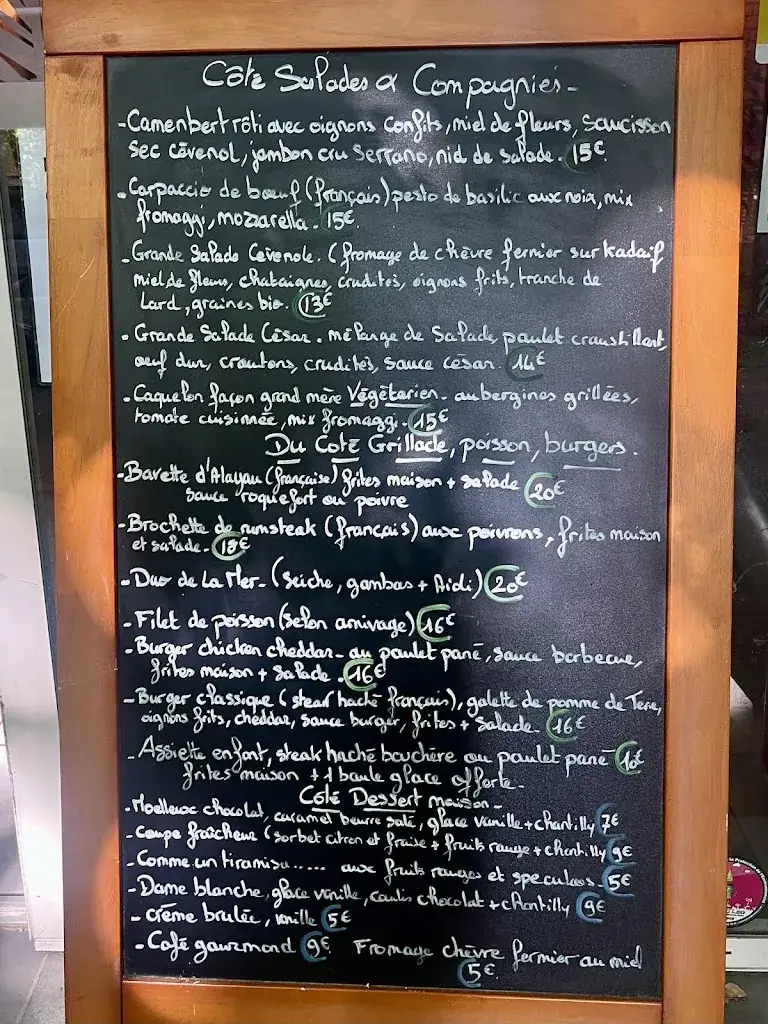 Côté Salades & Compagnies-
-Camenbert rôti avec oignons confits, miel de fleurs, saucisson
sec cévenol, jambon cru Serrano, nid de salade. 15€.
-Carpaccio de bœuf (français) pesto de basilic aux noix, mix
fromaggi, mozzarella. 15€.
-Grande Salade Cévenole. (fromage de chèvre fermier sur Kadaïf
miel de fleurs, chataignes, crudités, oignons frits, tranche de
Lard, graines bio. 13€
-Grande Salade César. mélange de Salade, poulet croustillant,
œuf dur, croutons, crudités, sauce césar. 14€
-Caquelon façon grand mère Végétarien- aubergines grillées,
tomate cuisinée, mix fromaggi. 15€
Du Coté Grillade, poisson, burgers.
-Bavette d'Aloyau (française) frites maison + salade 20€
sauce roquefort ou poivre
-Brochette de rumsteak (français) aux poivrons, frites maison
et salade-
-Duo de La Mer- (Seiche, gambas + Aïoli) 20€
-Filet de poisson (selon arrivage) 16€
-Burger chicken cheddar- au poulet pané, sauce barbecue,
frites maison + Salade. 16€
-Burger classique (steak haché français), galette de pomme de Terre,
oignons frits, cheddar, sauce burger, frites + salade- 16€
-Assiette enfant, steak haché bouchère ou poulet pané 10€
frites maison + 1 boule glace offerte-
Côté Dessert maison-
-Moelleux chocolat, caramel beurre salé, glace vanille + chantilly 7€
-coupe fraîcheur (sorbet citron et fraise + fruits rouge + chantilly 9€
-Comme un tiramisu..... aux fruits rouges et speculoos 5€
-Dame blanche, glace vanille, coulis chocolat + chantilly 9€
-crème brulée, vanille 5€
-Café gourmand 9€ Fromage chèvre fermier au miel
5€